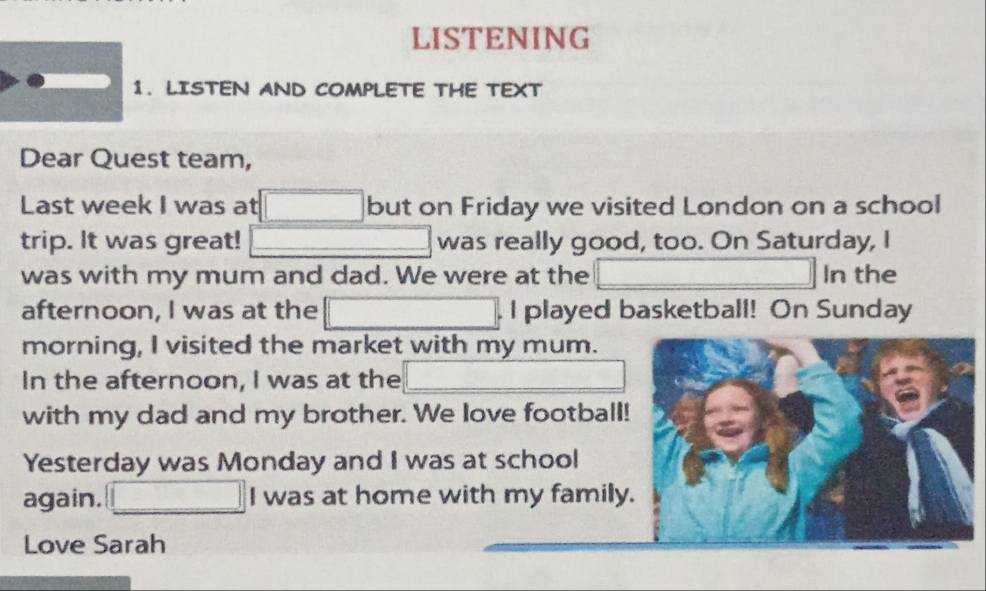 LISTENING
1. LISTEN AND COMPLETE THE TEXT
Dear Quest team,
Last week I was at but on Friday we visited London on a school
trip. It was great! was really good, too. On Saturday, I
was with my mum and dad. We were at the In the
afternoon, I was at the . I played basketball! On Sunday
morning, I visited the market with my mum.
In the afternoon, I was at the
with my dad and my brother. We love football!
Yesterday was Monday and I was at school
again. I was at home with my family.
Love Sarah